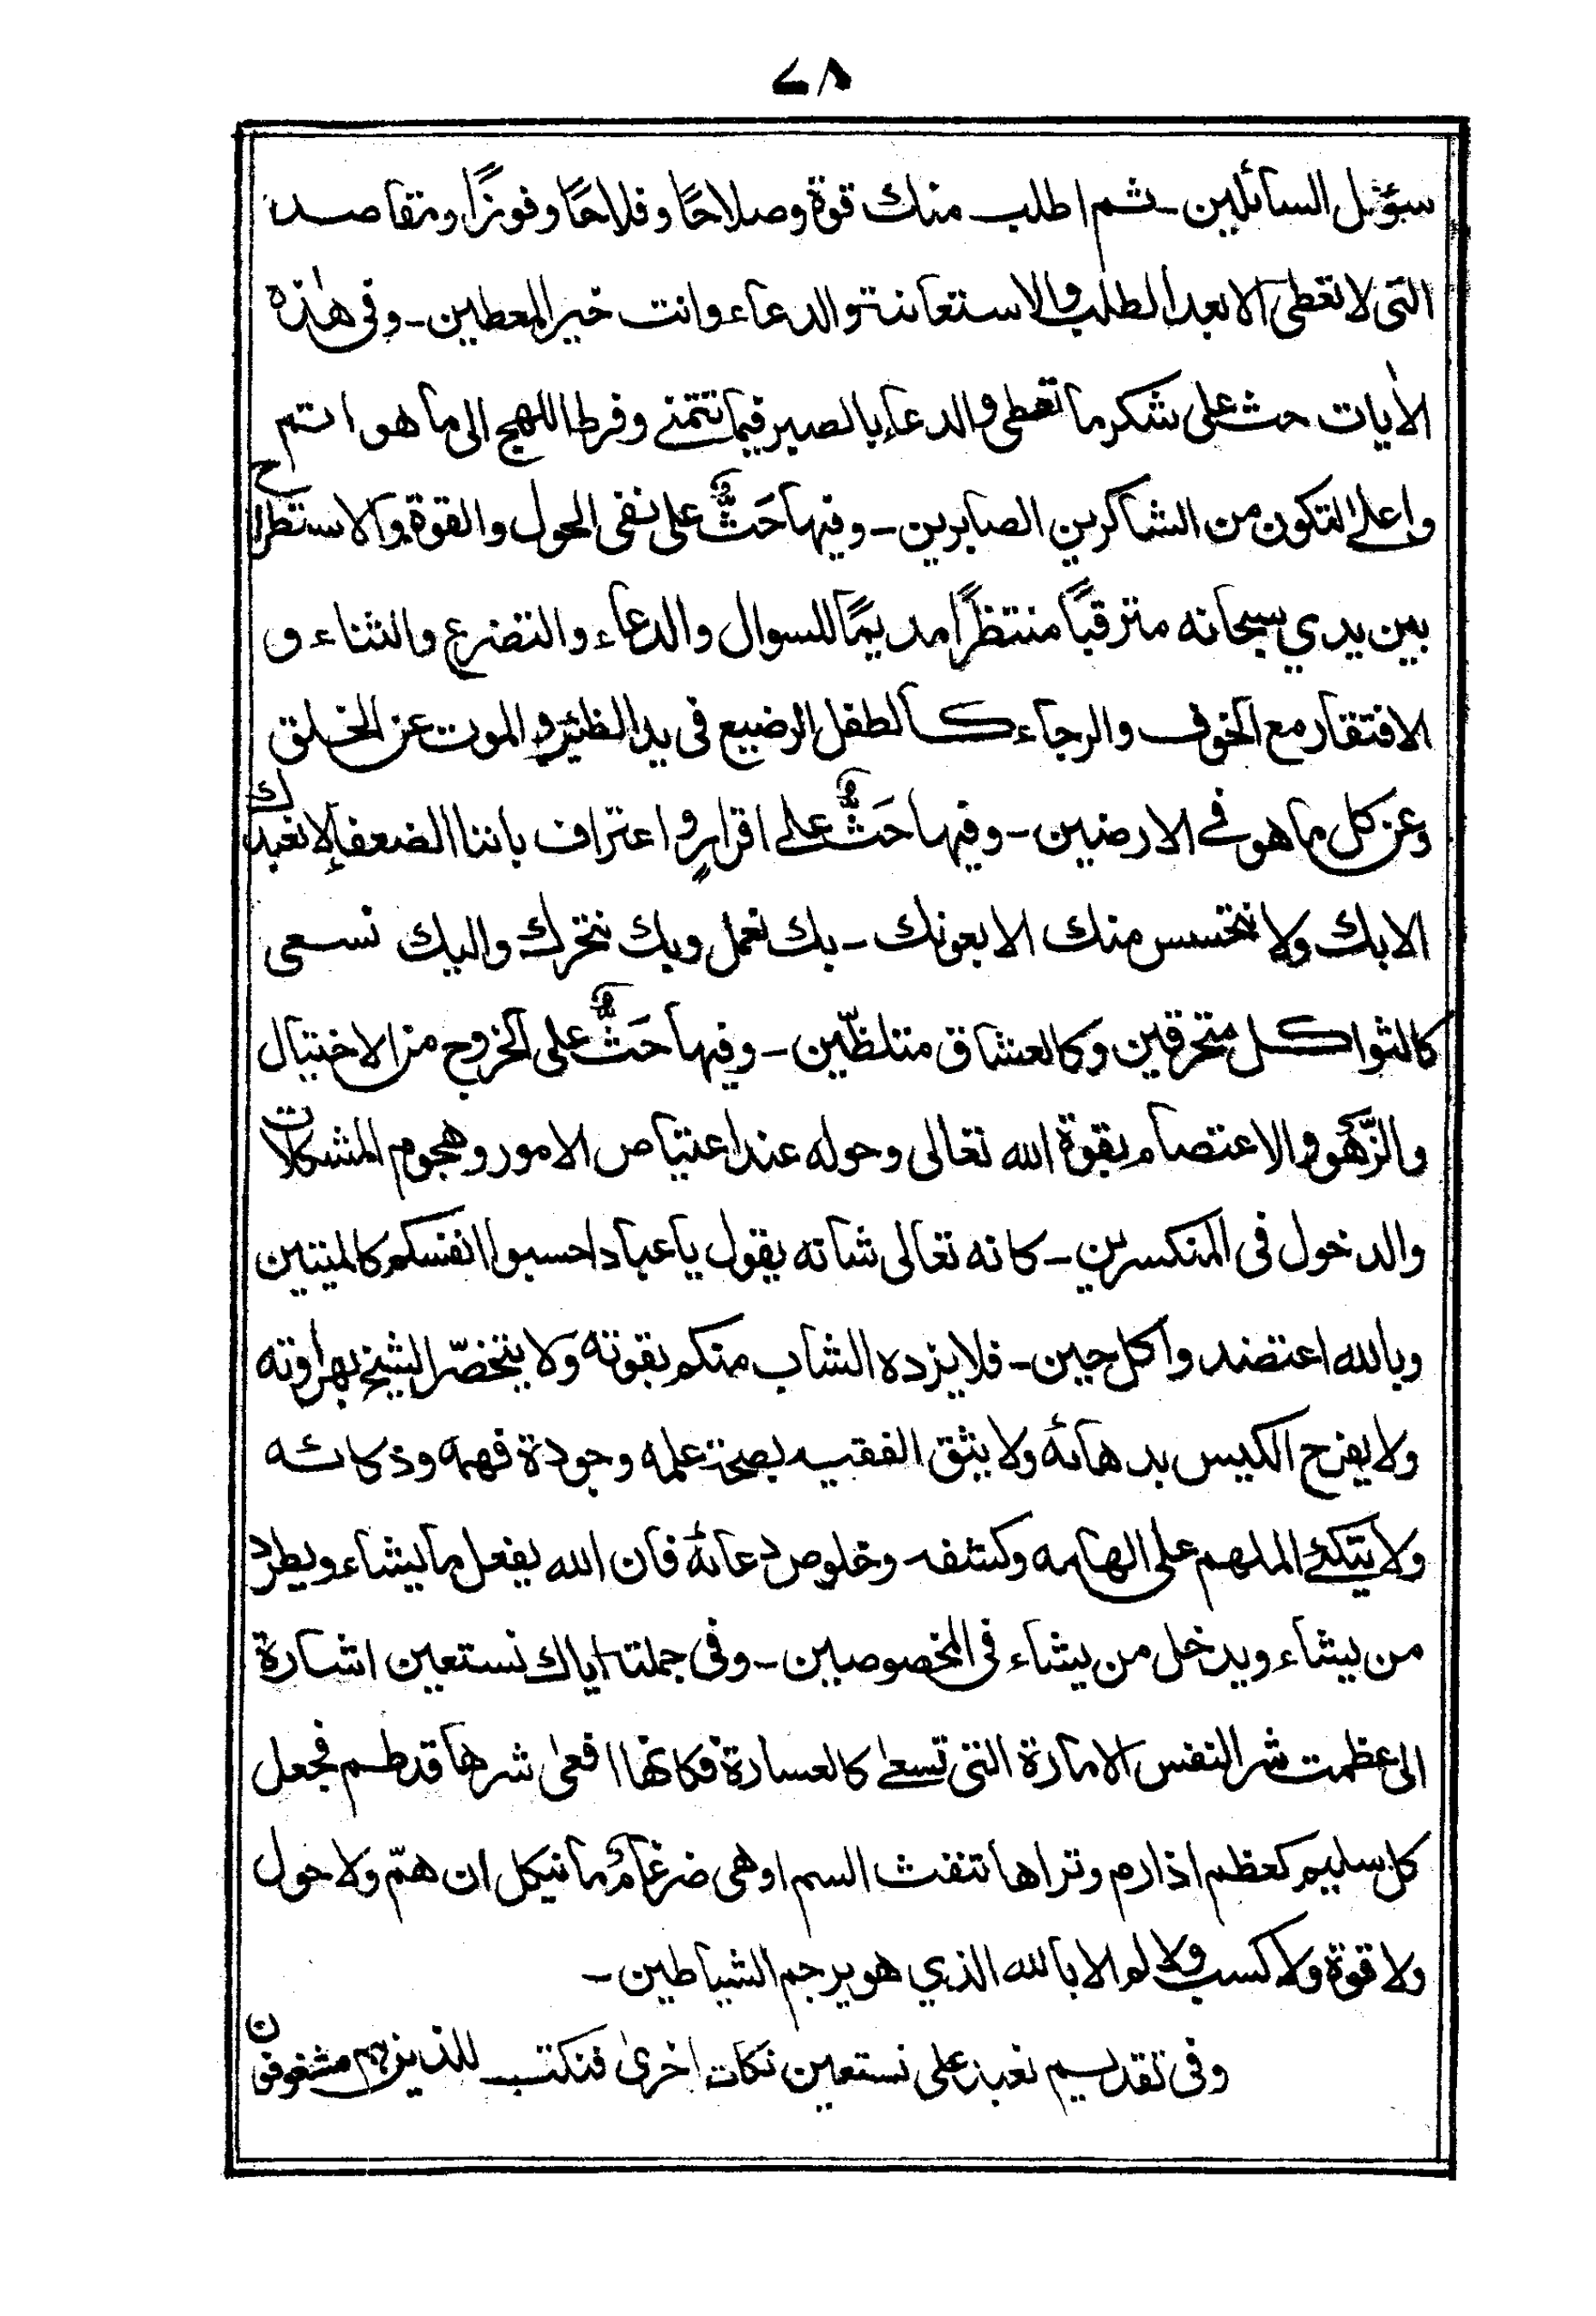 ٧٨
سؤل السائلين ـ ثم اطلب منك قوة وصلاحًا وفلاحًا وفوزًا ومقاصد
التى لا تعطى الا بعد الطلب والاستعانة والدعاء وانت خير المعطين ـ وفى هٰذه
الاٰيات حث على شكر ما تعطى والدعاء بالصبر فيما تتمنى وفرط اللهج الى ما هو اتم
واعلى لتكون من الشاكرين الصابرين ـ وفيها حَثٌّ على نفى الحول والقوة والاستطراح
بين يدي سبحانه مترقبًا منتظرًا مديمًا للسوال والدعاء والتضرع والثناء و
الافتقار مع الخوف والرجاء كالطفل الرضيع فى يد الظئر والموت عن الخلق
وعن كل ما هو فى الارضين ـ وفيها حَثٌّ على اقرارٍ واعتراف باننا الضعفاء لا نعبدك
الا بك ولا نتحسس منك الا بعونك ـ بك نعمل وبك نتحرك واليك نسعى
كالثواكل متحرقين وكالعشاق متلظّين ـ وفيها حَثٌّ على الخروج من الاختيال
والزَّهْو والاعتصام بقوة الله تعالى وحوله عند اعتياص الامور وهجوم المشكلات
والدخول فى المنكسرين ـ كانه تعالى شانه يقول يا عباد احسبوا انفسكم كالميتين
وبالله اعتضدوا كل حين ـ فلا يزده الشاب منكم بقوته ولا يتخصّر الشيخ بهراوته
ولا يفرح الكيس بدهائه ولا يثق الفقيه بصحة علمه وجودة فهمه وذكائه
ولا يتكئ الملهم على الهامه وكشفه وخلوص دعائه فان الله يفعل ما يشاء ويطرد
من يشاء ويدخل من يشاء فى المخصوصين ـ وفى جملة اياك نستعين اشارة
الى عظمت شر النفس الامارة التى تسعى كالعسارة فكانها افعى شرها قد طم فجعل
كل سليم كعظم اذا رم وتراها تنفث السم او هى ضرغام ما ينكل ان همّ ولا حول
ولا قوة ولا كسب ولا لم الا بالله الذي هو يرجم الشياطين ـ
وفى تقديم نعبد على نستعين نكات اخرىٰ فنكتب للذين هم مشغوفون